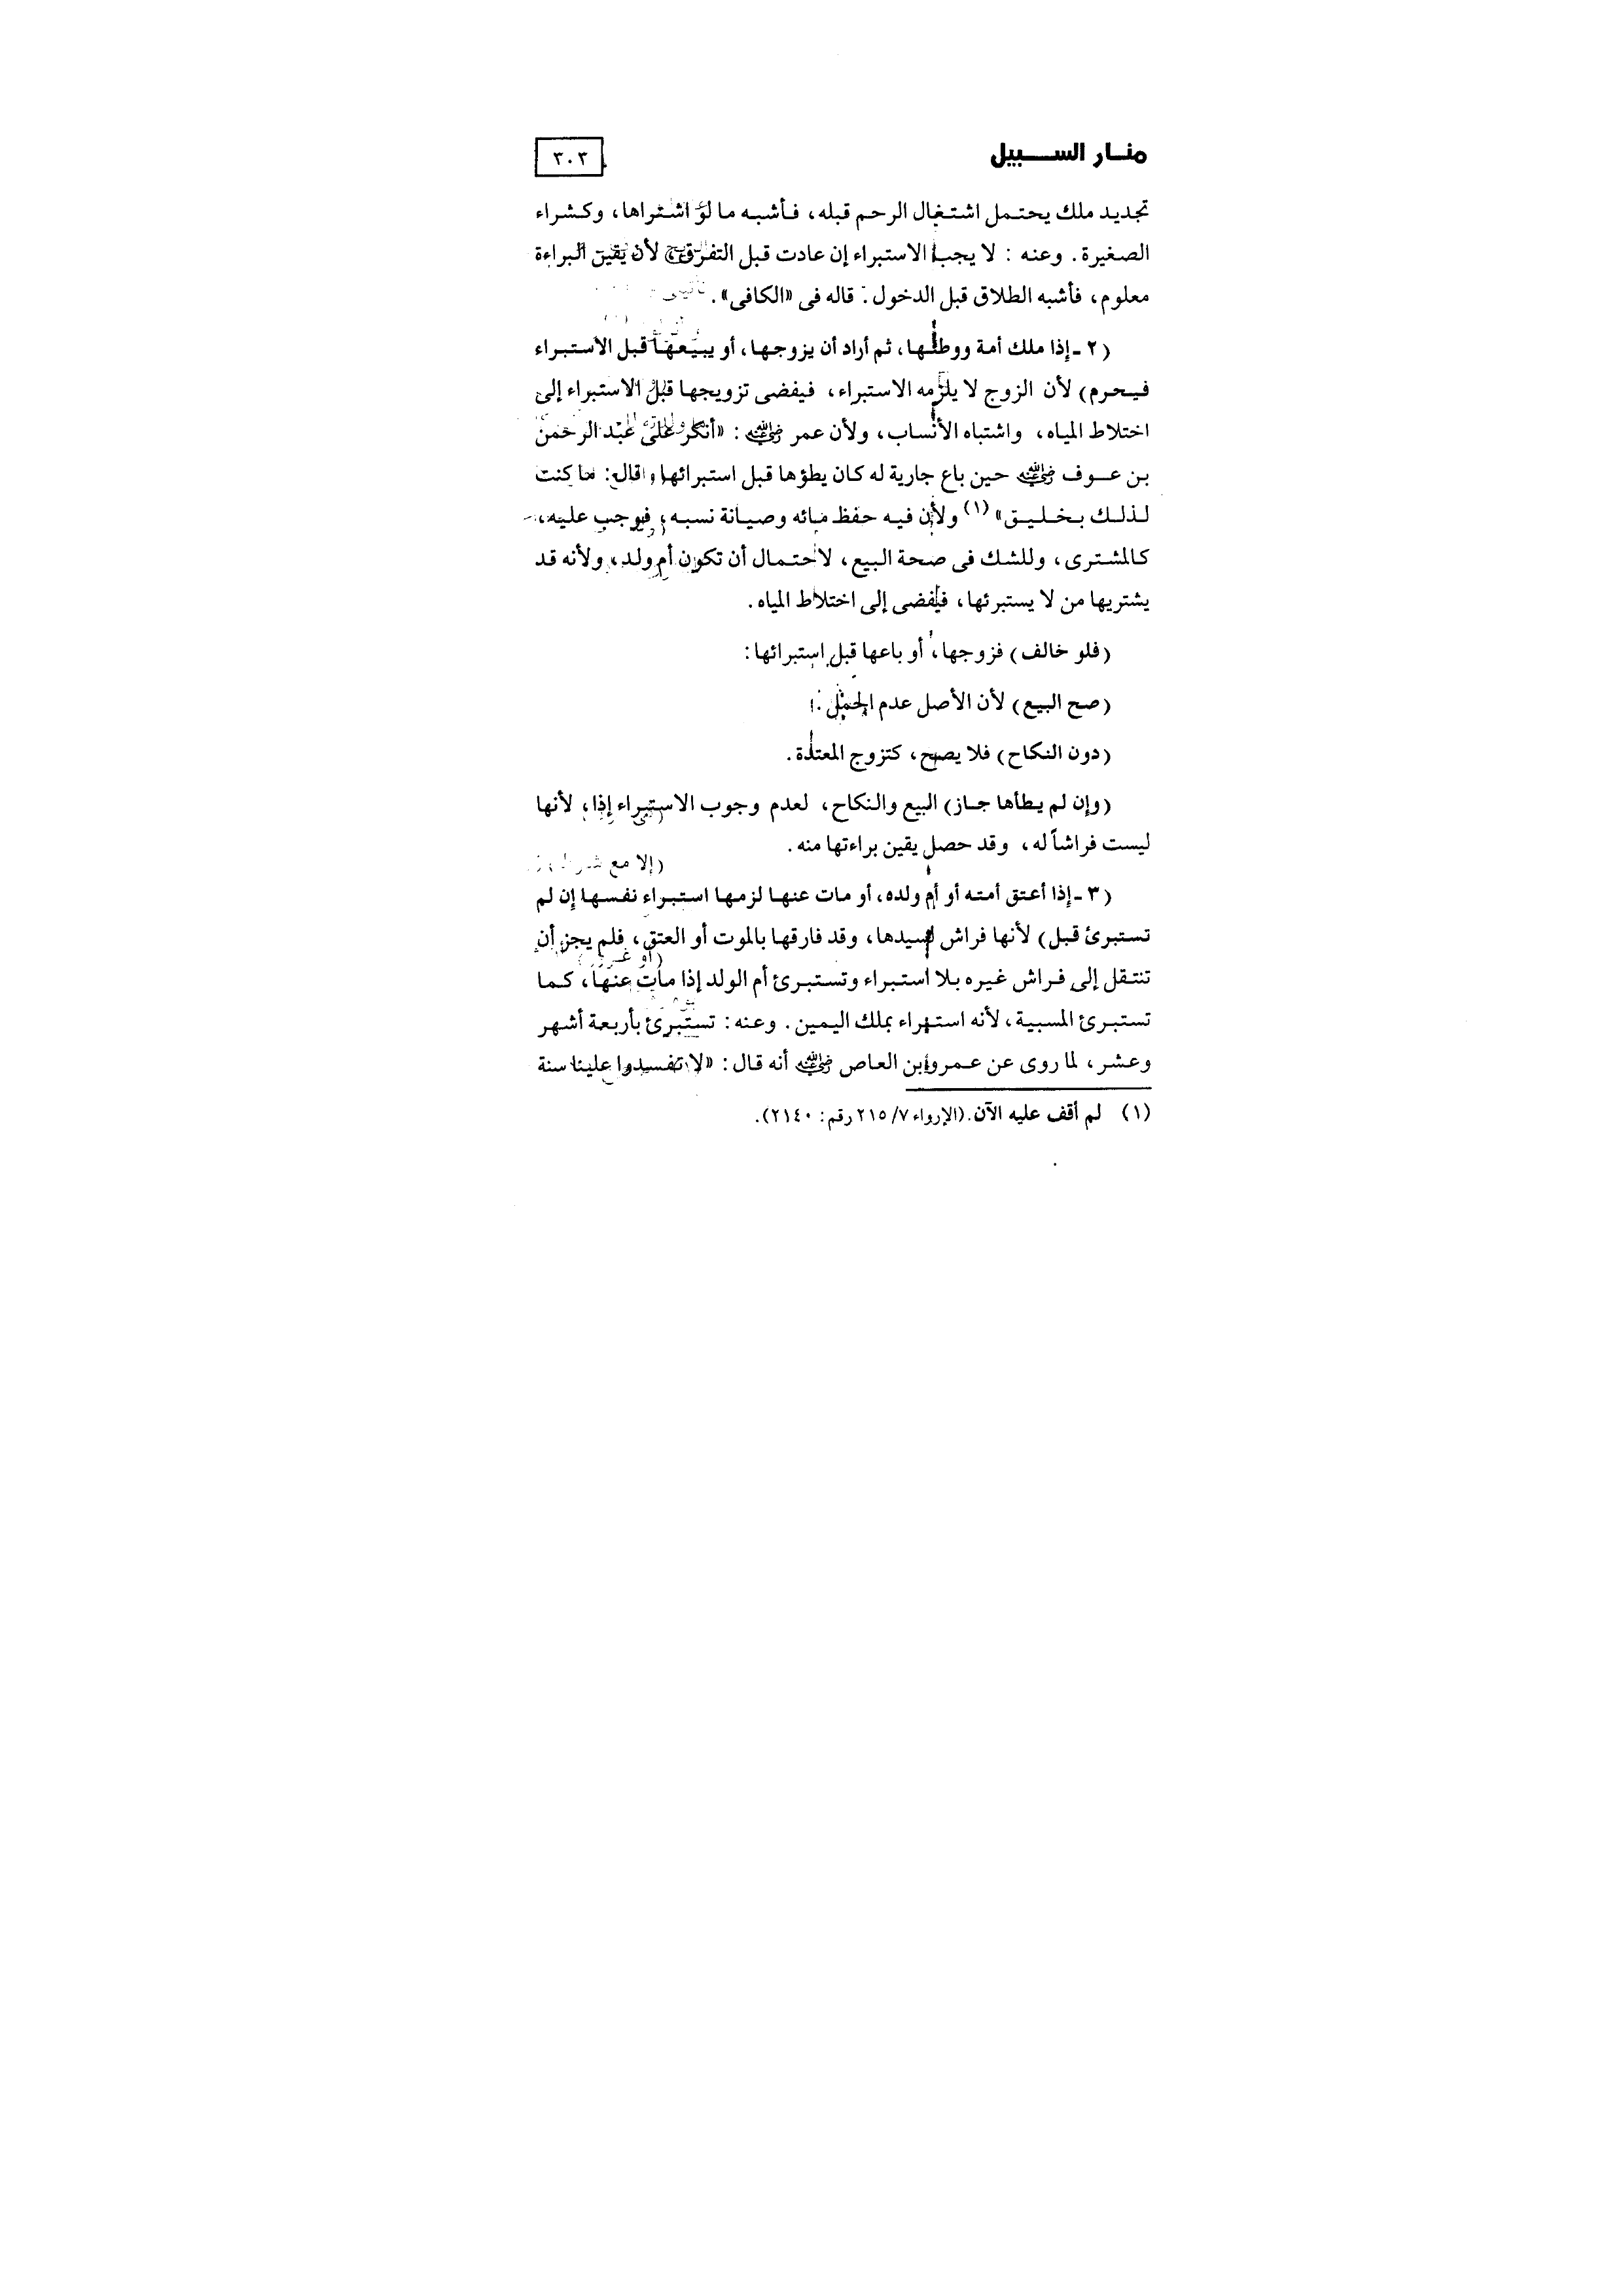 منار السبيل
٣٠٣
تجديد ملك يحتمل اشتغال الرحم قبله، فأشبه ما لو اشتراها، وكشراء
الصغيرة. وعنه: لا يجب الاستبراء إن عادت قبل التفرق، لأن يقين البراءة
معلوم، فأشبه الطلاق قبل الدخول. قاله فى «الكافى».
(٢ - إذا ملك أمة ووطئها، ثم أراد أن يزوجها، أو يبيعها قبل الاستبراء
فيحرم) لأن الزوج لا يلزمه الاستبراء، فيفضى تزويجها قبل الاستبراء إلى
اختلاط المياه، واشتباه الأنساب، ولأن عمر رضي الله عنه: «أنكر على عبد الرحمن
بن عوف رضي الله عنه حين باع جارية له كان يطؤها قبل استبرائها وقال: ما كنت
لذلك بخليق» (١) ولأن فيه حفظ مائه وصيانة نسبه، فوجب عليه،
كالمشترى، وللشك فى صحة البيع، لاحتمال أن تكون أم ولد، ولأنه قد
يشتريها من لا يستبرئها، فيفضى إلى اختلاط المياه.
(فلو خالف) فزوجها، أو باعها قبل استبرائها:
(صح البيع) لأن الأصل عدم الحمل.
(دون النكاح) فلا يصح، كتزوج المعتدة.
(وإن لم يطأها جاز) البيع والنكاح، لعدم وجوب الاستبراء إذا، لأنها
ليست فراشاً له، وقد حصل يقين براءتها منه.
(٣ - إذا أعتق أمته أو أم ولده، أو مات عنها لزمها استبراء نفسها إن لم
تستبرئ قبل) لأنها فراش لسيدها، وقد فارقها بالموت أو العتق، فلم يجز أن
تنتقل إلى فراش غيره بلا استبراء وتستبرئ أم الولد إذا مات عنها، كما
تستبرئ المسبية، لأنه استبراء بملك اليمين. وعنه: تستبرئ بأربعة أشهر
وعشر، لما روى عن عمرو ابن العاص رضي الله عنه أنه قال: «لا تفسدوا علينا سنة
(١) لم أقف عليه الآن. (الإرواء ٧/ ٢١٥ رقم: ٢١٤٠).